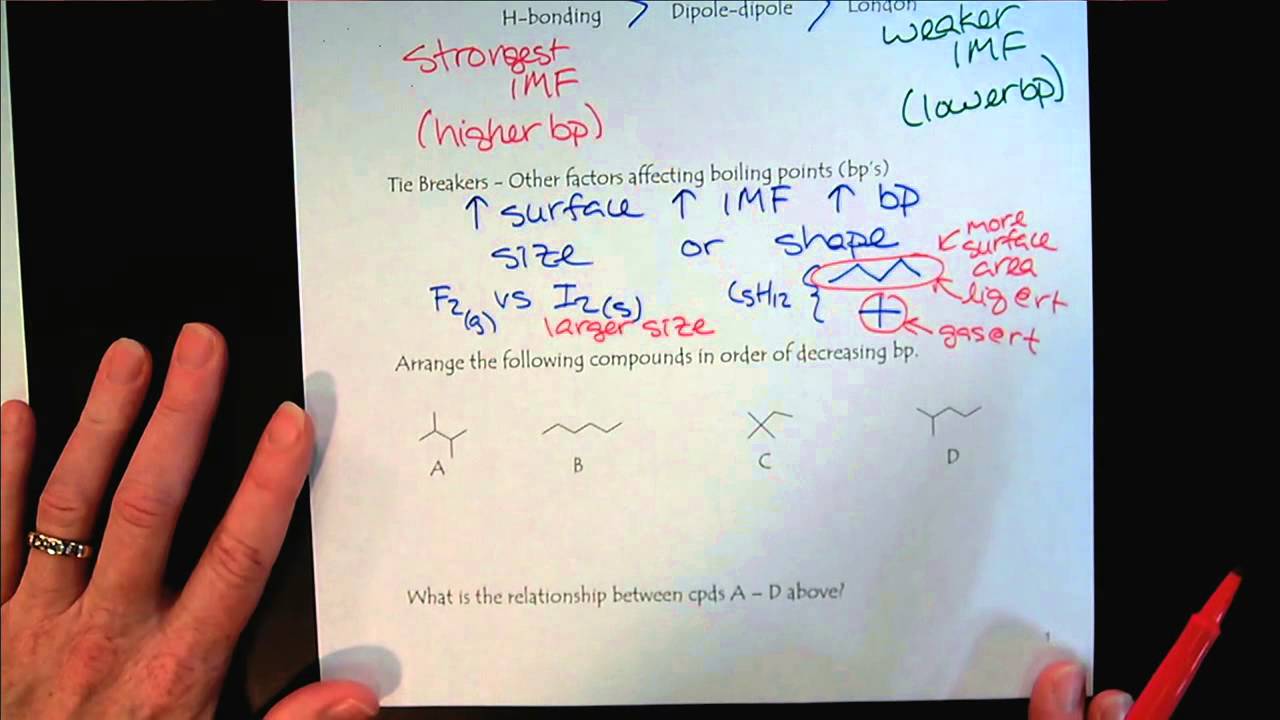 H-bonding > Dipole-dipole > London
strongest
IMF
(higher bp)
weaker
IMF
(lower bp)
Tie Breakers – Other factors affecting boiling points (bp's)
↑ surface ↑ IMF ↑ bp
size or shape
more
surface
area
F2(g) vs I2(s)
larger size
C5H12
liq@rt
gas@rt
Arrange the following compounds in order of decreasing bp.
A B C D
What is the relationship between cpds A – D above?
1